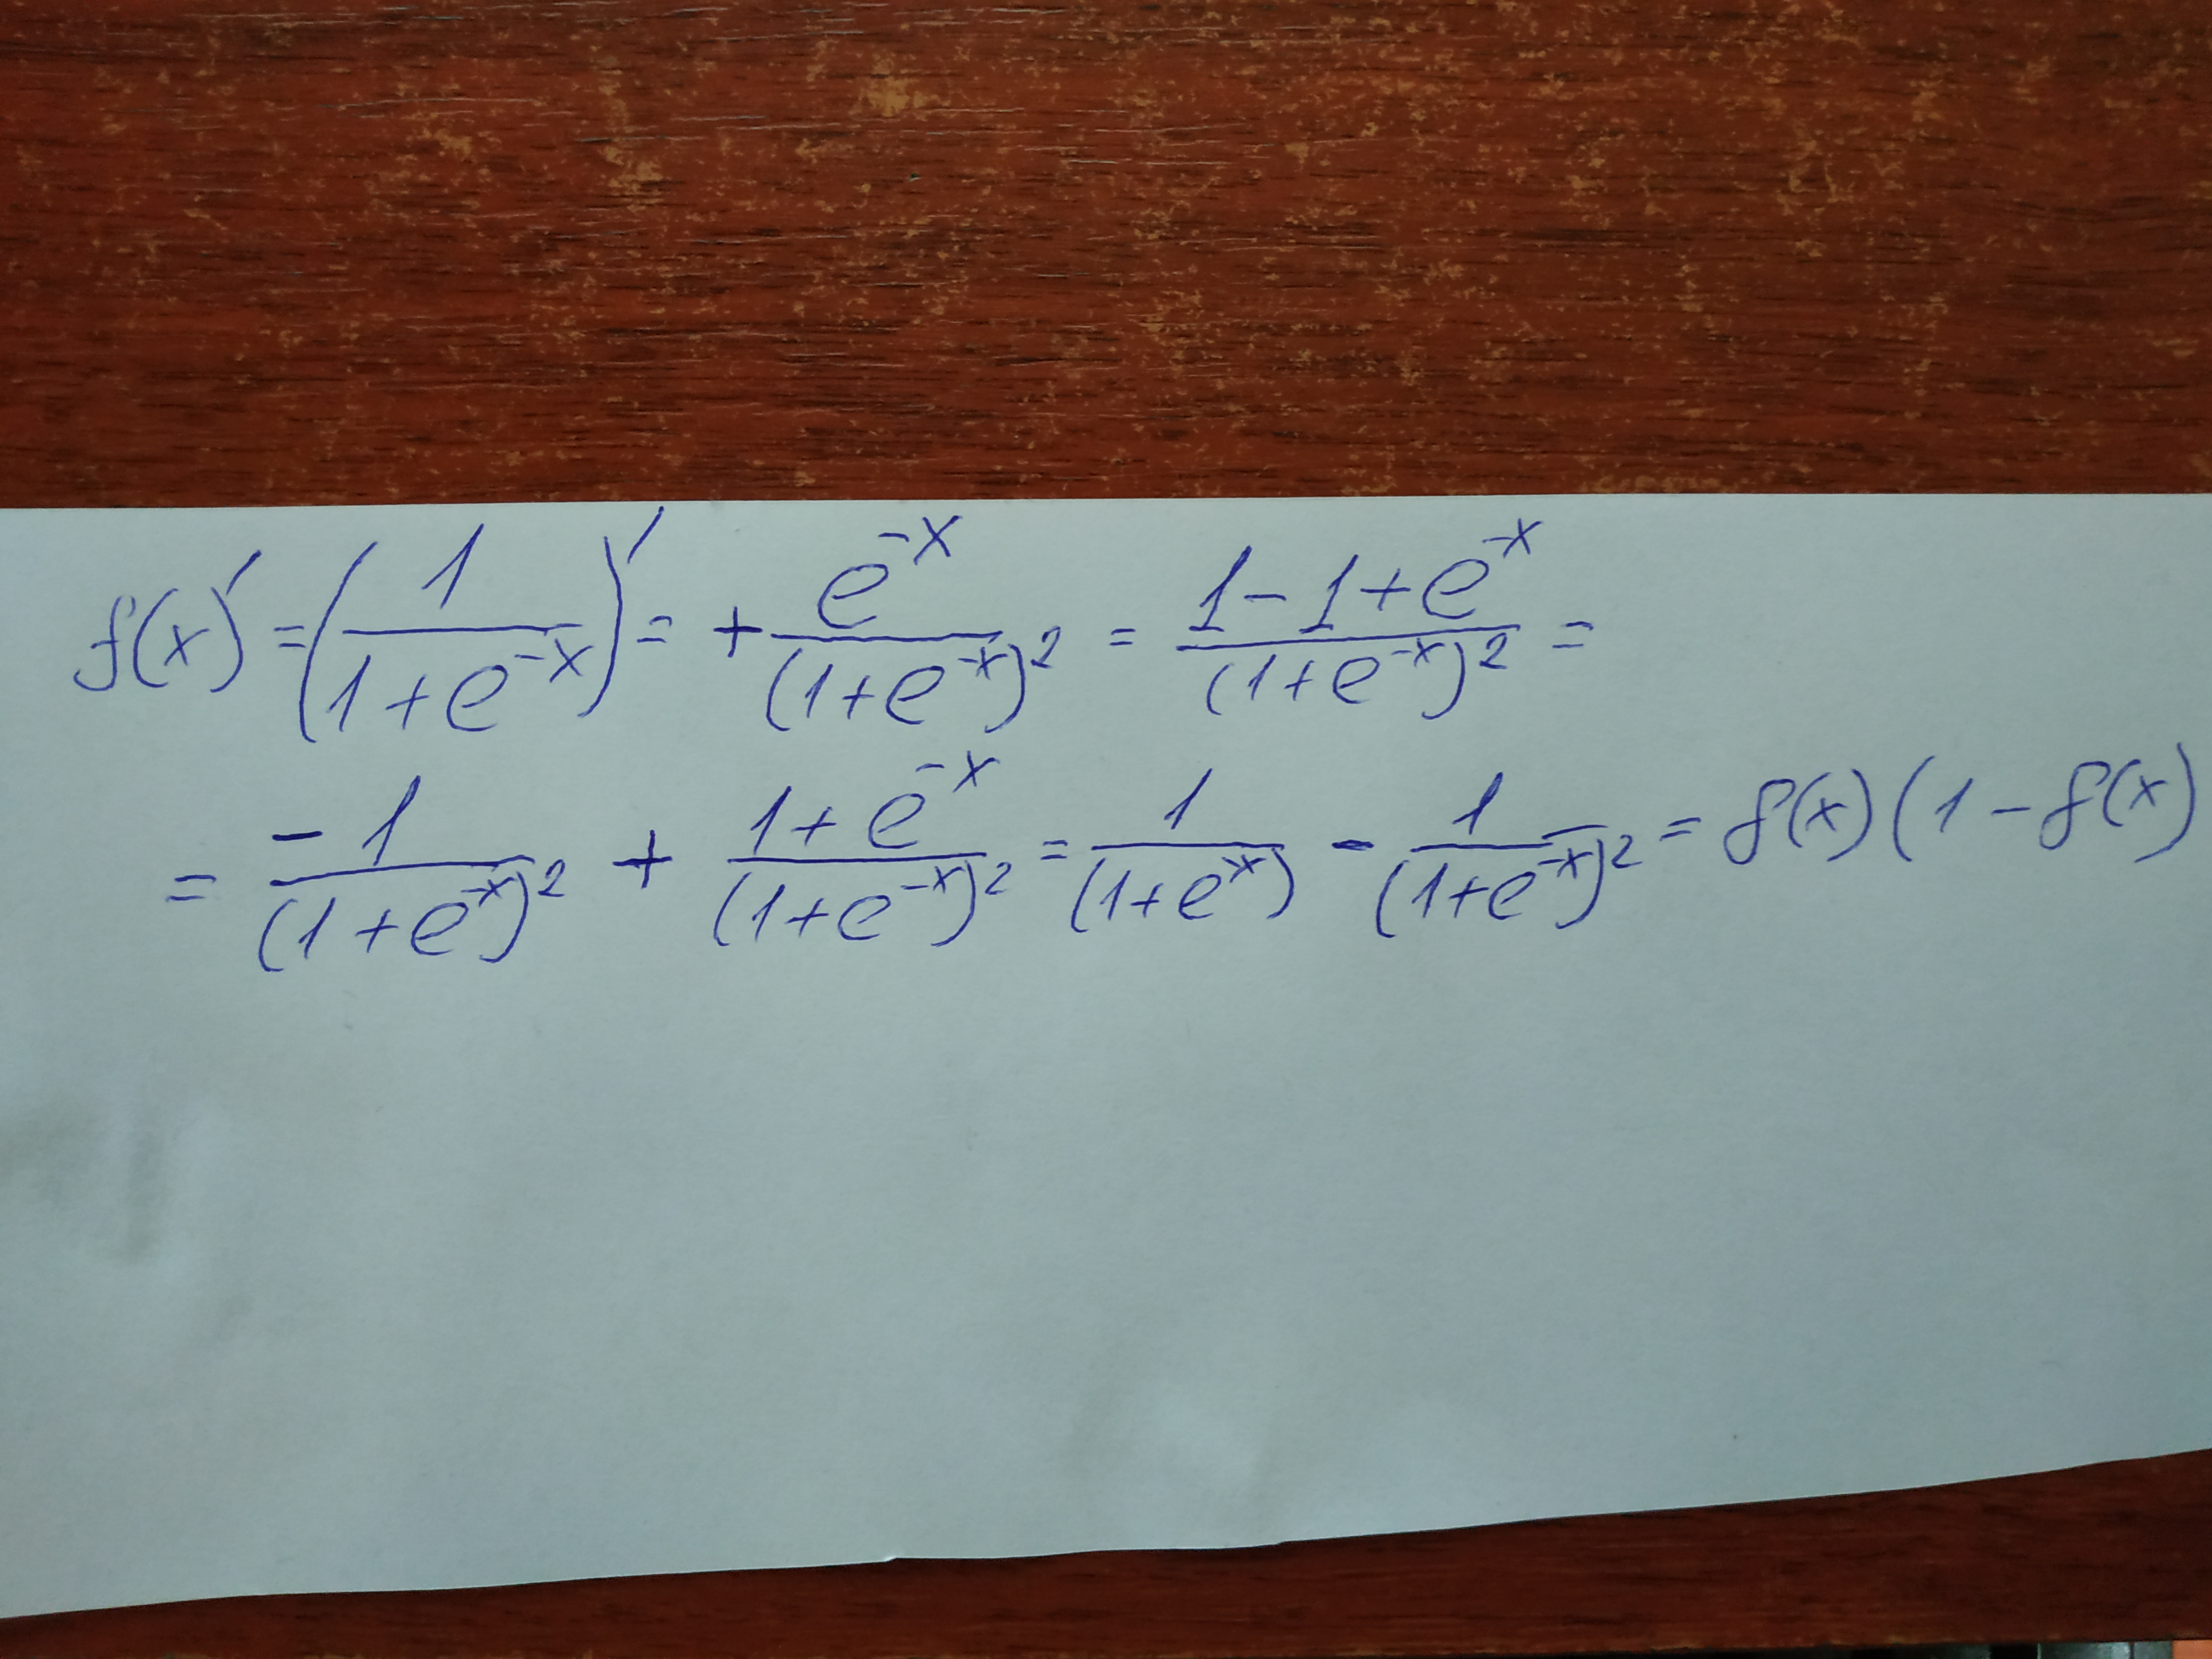 f(x)' = (1/(1+e^{-x}))' = + e^{-x}/(1+e^{-x})^2 = (1-1+e^{-x})/(1+e^{-x})^2 =
= -1/(1+e^{-x})^2 + (1+e^{-x})/(1+e^{-x})^2 = 1/(1+e^{-x}) - 1/(1+e^{-x})^2 = f(x)(1-f(x)